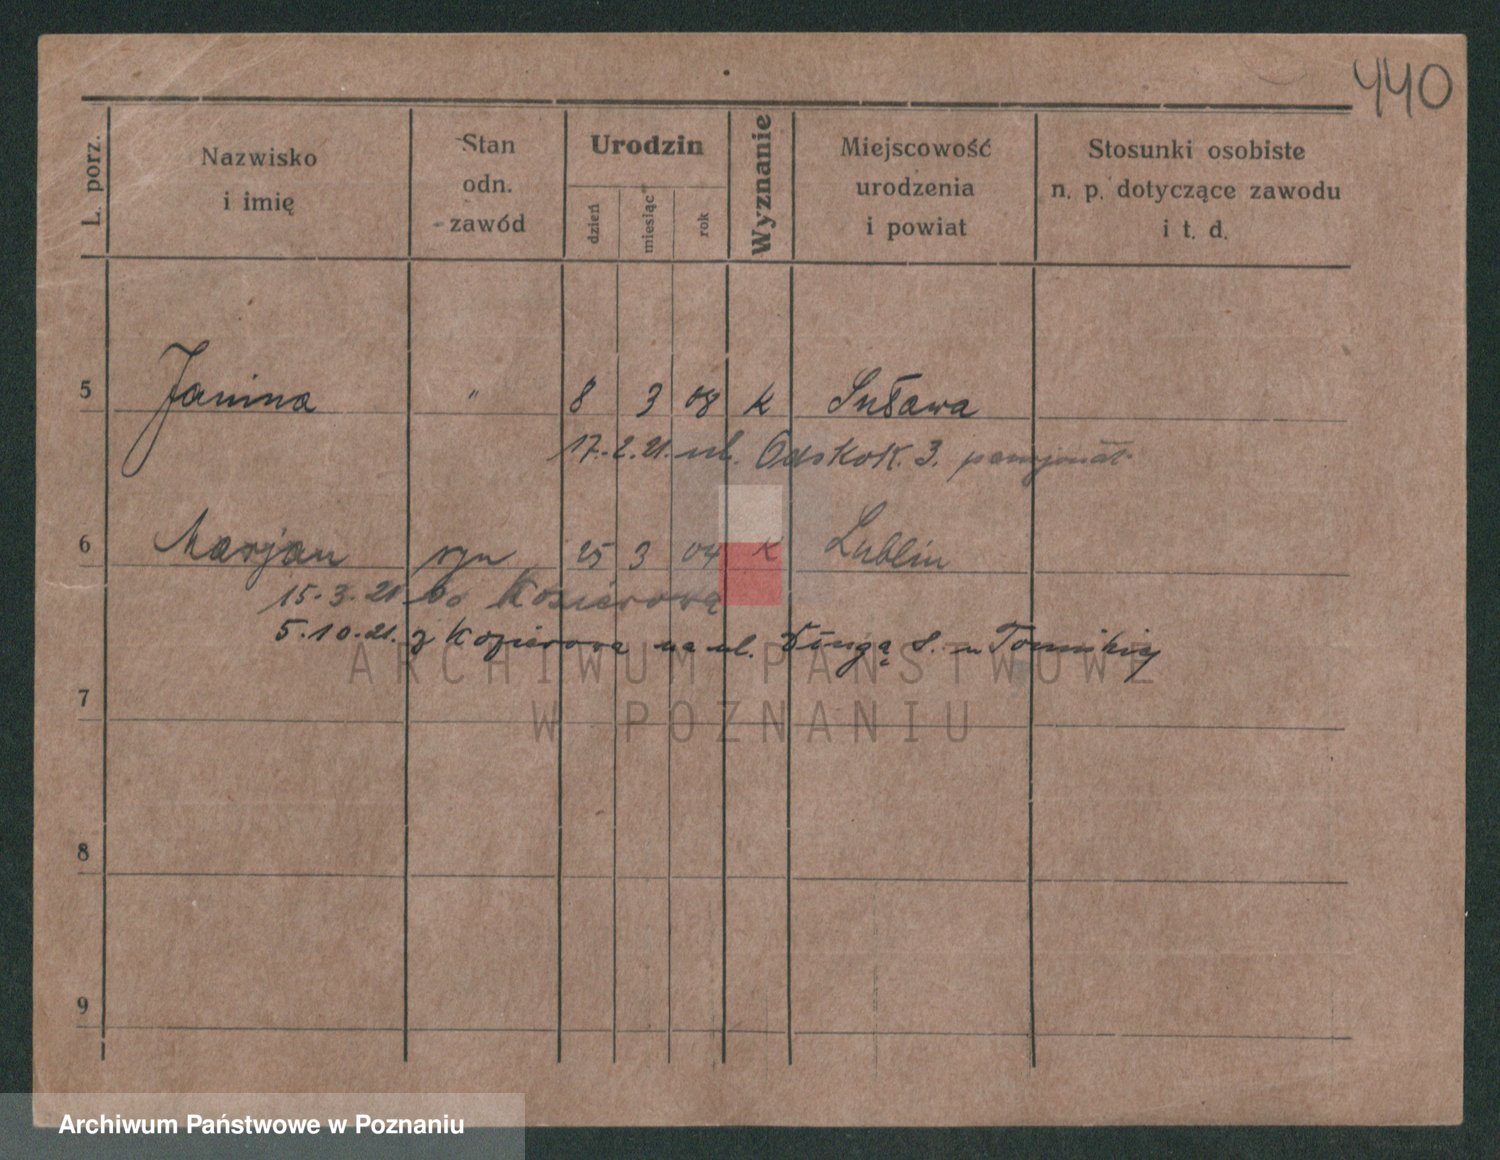 440
L. porz.
Nazwisko
i imię
Stan
odn.
zawód
Urodzin
dzień
miesiąc
rok
Wyznanie
Miejscowość
urodzenia
i powiat
Stosunki osobiste
n. p. dotyczące zawodu
i t. d.
5 Janina " 8 3 08 K
17.2.21. ul. Odskok. 3.
6 Marjan syn 25 3 04 K Lublin
15.3.21 do
5.10.21. z na ul. Długą 8. u
ARCHIWUM PAŃSTWOWE
W POZNANIU
7
8
9
Archiwum Państwowe w Poznaniu